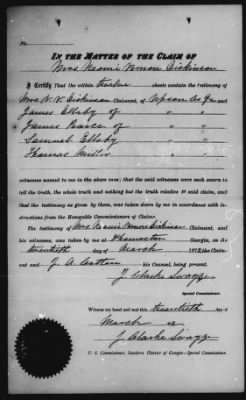 No.
IN THE MATTER OF THE CLAIM OF
Mrs Naomi Vernon Dickinson
I Certify That the within twelve sheets contain the testimony of
Mrs. N. V. Dickinson Claimant, of Upson Co Ga
James Ellsby of " "
James Pearce of " "
Samuel Ellsby " "
Thomas " "
witnesses named to me in the above case; that the said witnesses were each sworn to
tell the truth, the whole truth and nothing but the truth relative to said claim, and
that the testimony as given by them, was taken down by me in accordance with in-
structions from the Honorable Commissioners of Claims.
The testimony of Mrs Naomi Vernon Dickinson Claimant, and
his witnesses, was taken by me at Thomaston Georgia, on the
twentieth day of March 187 , the Claim-
ant and J. A. Cotten his Counsel, being present.
J Clarke Swayze
Special Commissioner.
Witness my hand and seal this twentieth day of
March
J Clarke Swayze
U. S. Commissioner, Southern District of Georgia—Special Commissioner.